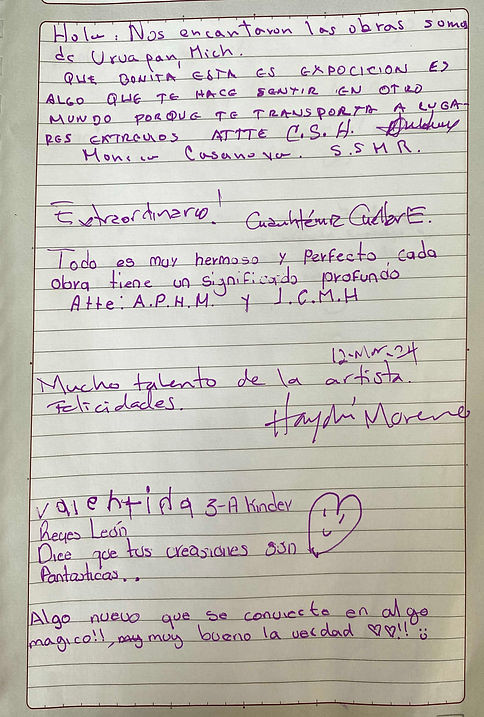 Hola: Nos encantaron las obras somos
de Uruapan, Mich.
QUE BONITA ESTA ES EXPOCICION ES
ALGO QUE TE HACE SENTIR EN OTRO
MUNDO PORQUE TE TRANSPORTA A LUGA-
RES EXTREMOS ATTTE C.S.H.
Monica Casanova. S.S M R.
Extraordinario! Cuauhtémoc Cuellar E.
Todo es muy hermoso y Perfecto, cada
obra tiene un significado profundo
Atte: A.P.H.M. y J.C.M.H
12-Mar-24
Mucho talento de la artista.
Felicidades.
Haydeé Moreno
valentida 3-A Kinder
Reyes León
Dice que tus creasiones son
Fantasticas..
Algo nuevo que se convierte en algo
magico!!, muy bueno la verdad ♡♡!! :)